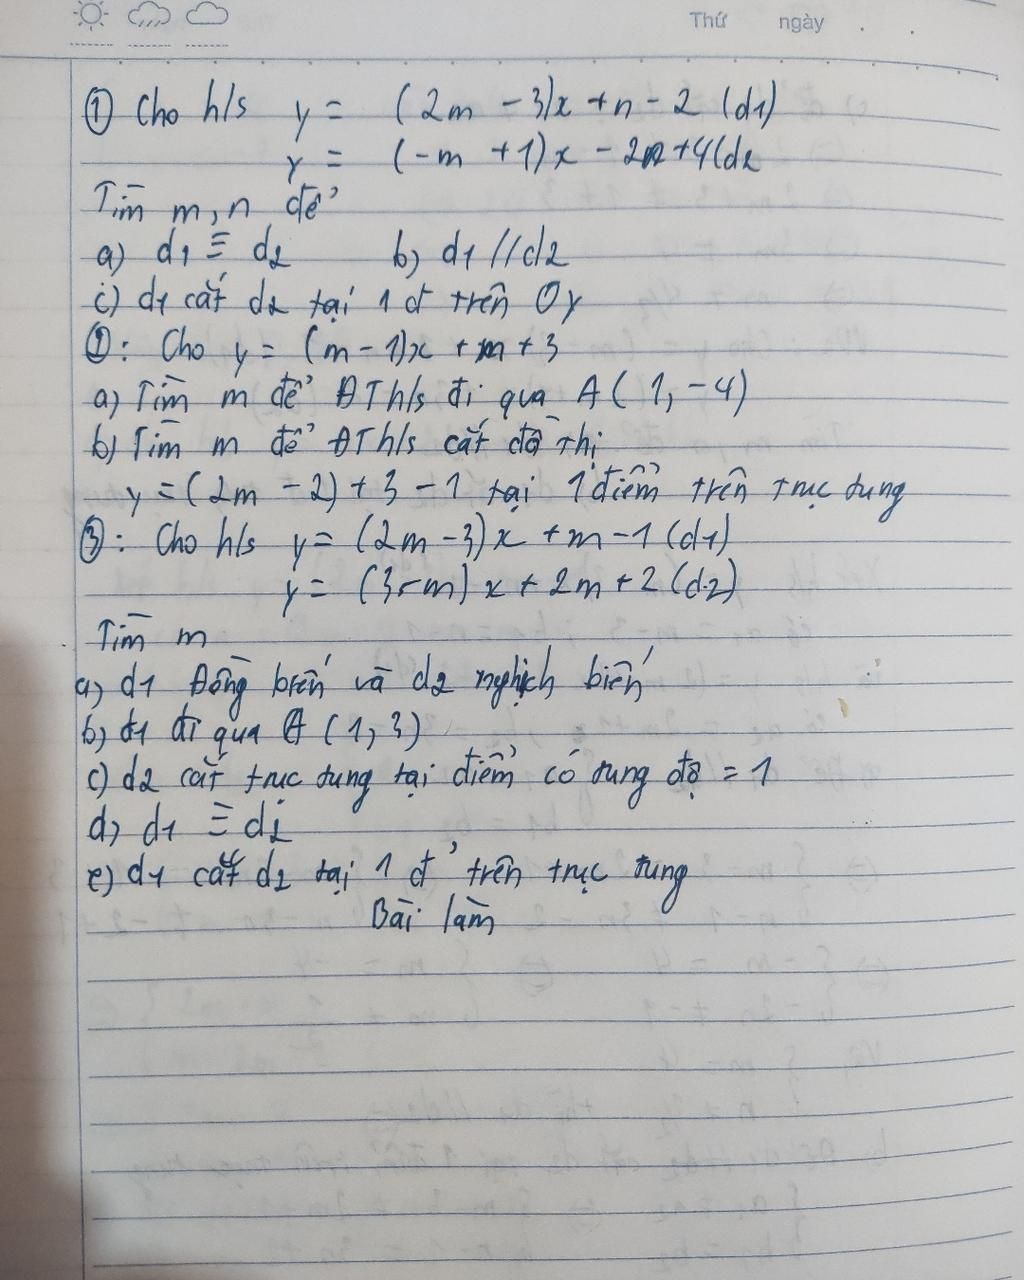 Thứ ngày
① Cho h/s y = (2m - 3)x + n - 2 (d1)
y = (-m + 1)x - 2n + 4 (d2
Tìm m, n để
a) d1 ≡ d2 b) d1 // d2
c) d1 cắt d2 tại 1 đ trên Oy
②: Cho y = (m - 1)x + m + 3
a) Tìm m để ĐTh/s đi qua A (1, -4)
b) Tìm m để ĐTh/s cắt đồ thị
y = (2m - 2) + 3 - 1 tại 1 điểm trên trục tung
③: Cho h/s y = (2m - 3)x + m - 1 (d1)
y = (3 - m)x + 2m + 2 (d2)
Tìm m
a) d1 Đồng biến và d2 nghịch biến
b) d1 đi qua A (1, 3)
c) d2 cắt trục tung tại điểm có tung độ = 1
d) d1 ≡ d2
e) d1 cắt d2 tại 1 đ' trên trục tung
Bài làm